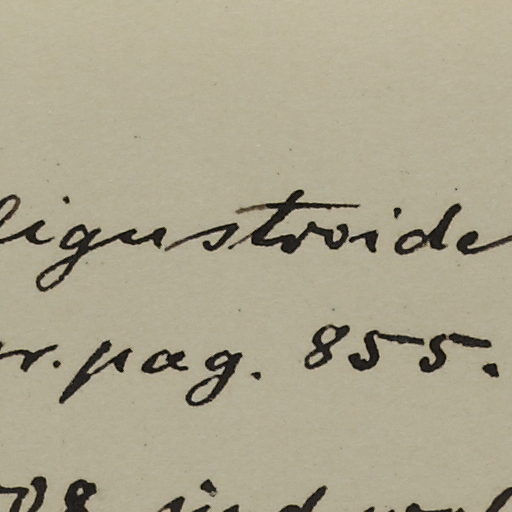 ligustroide
r. pag. 855.
08 sind